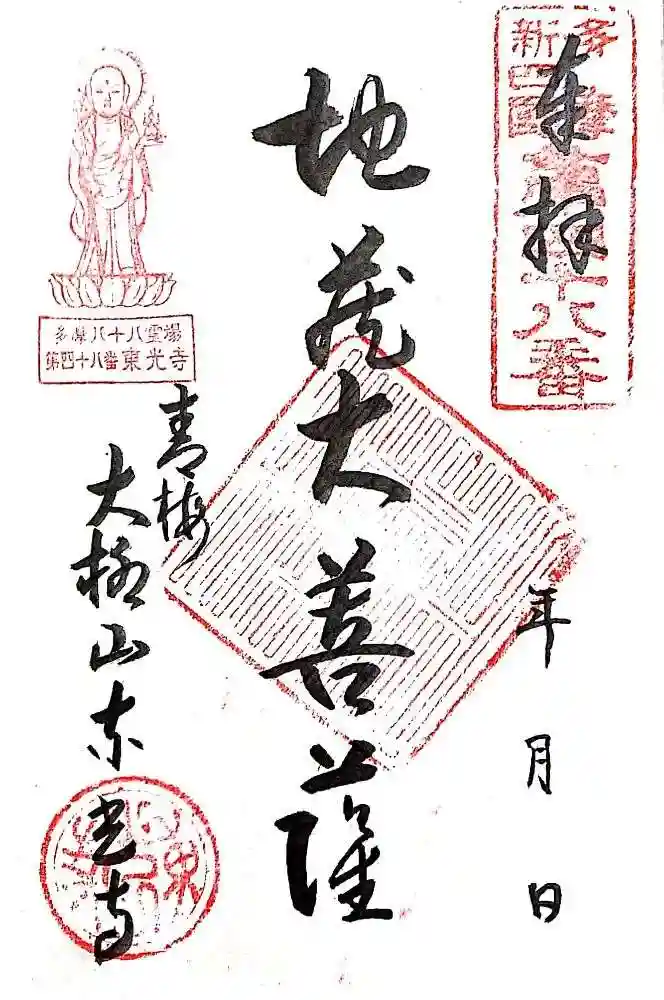 奉拝
新四國
多摩
第四十八番
年 月 日
地蔵大菩薩
多摩八十八霊場
第四十八番東光寺
青梅
大柳山東光寺